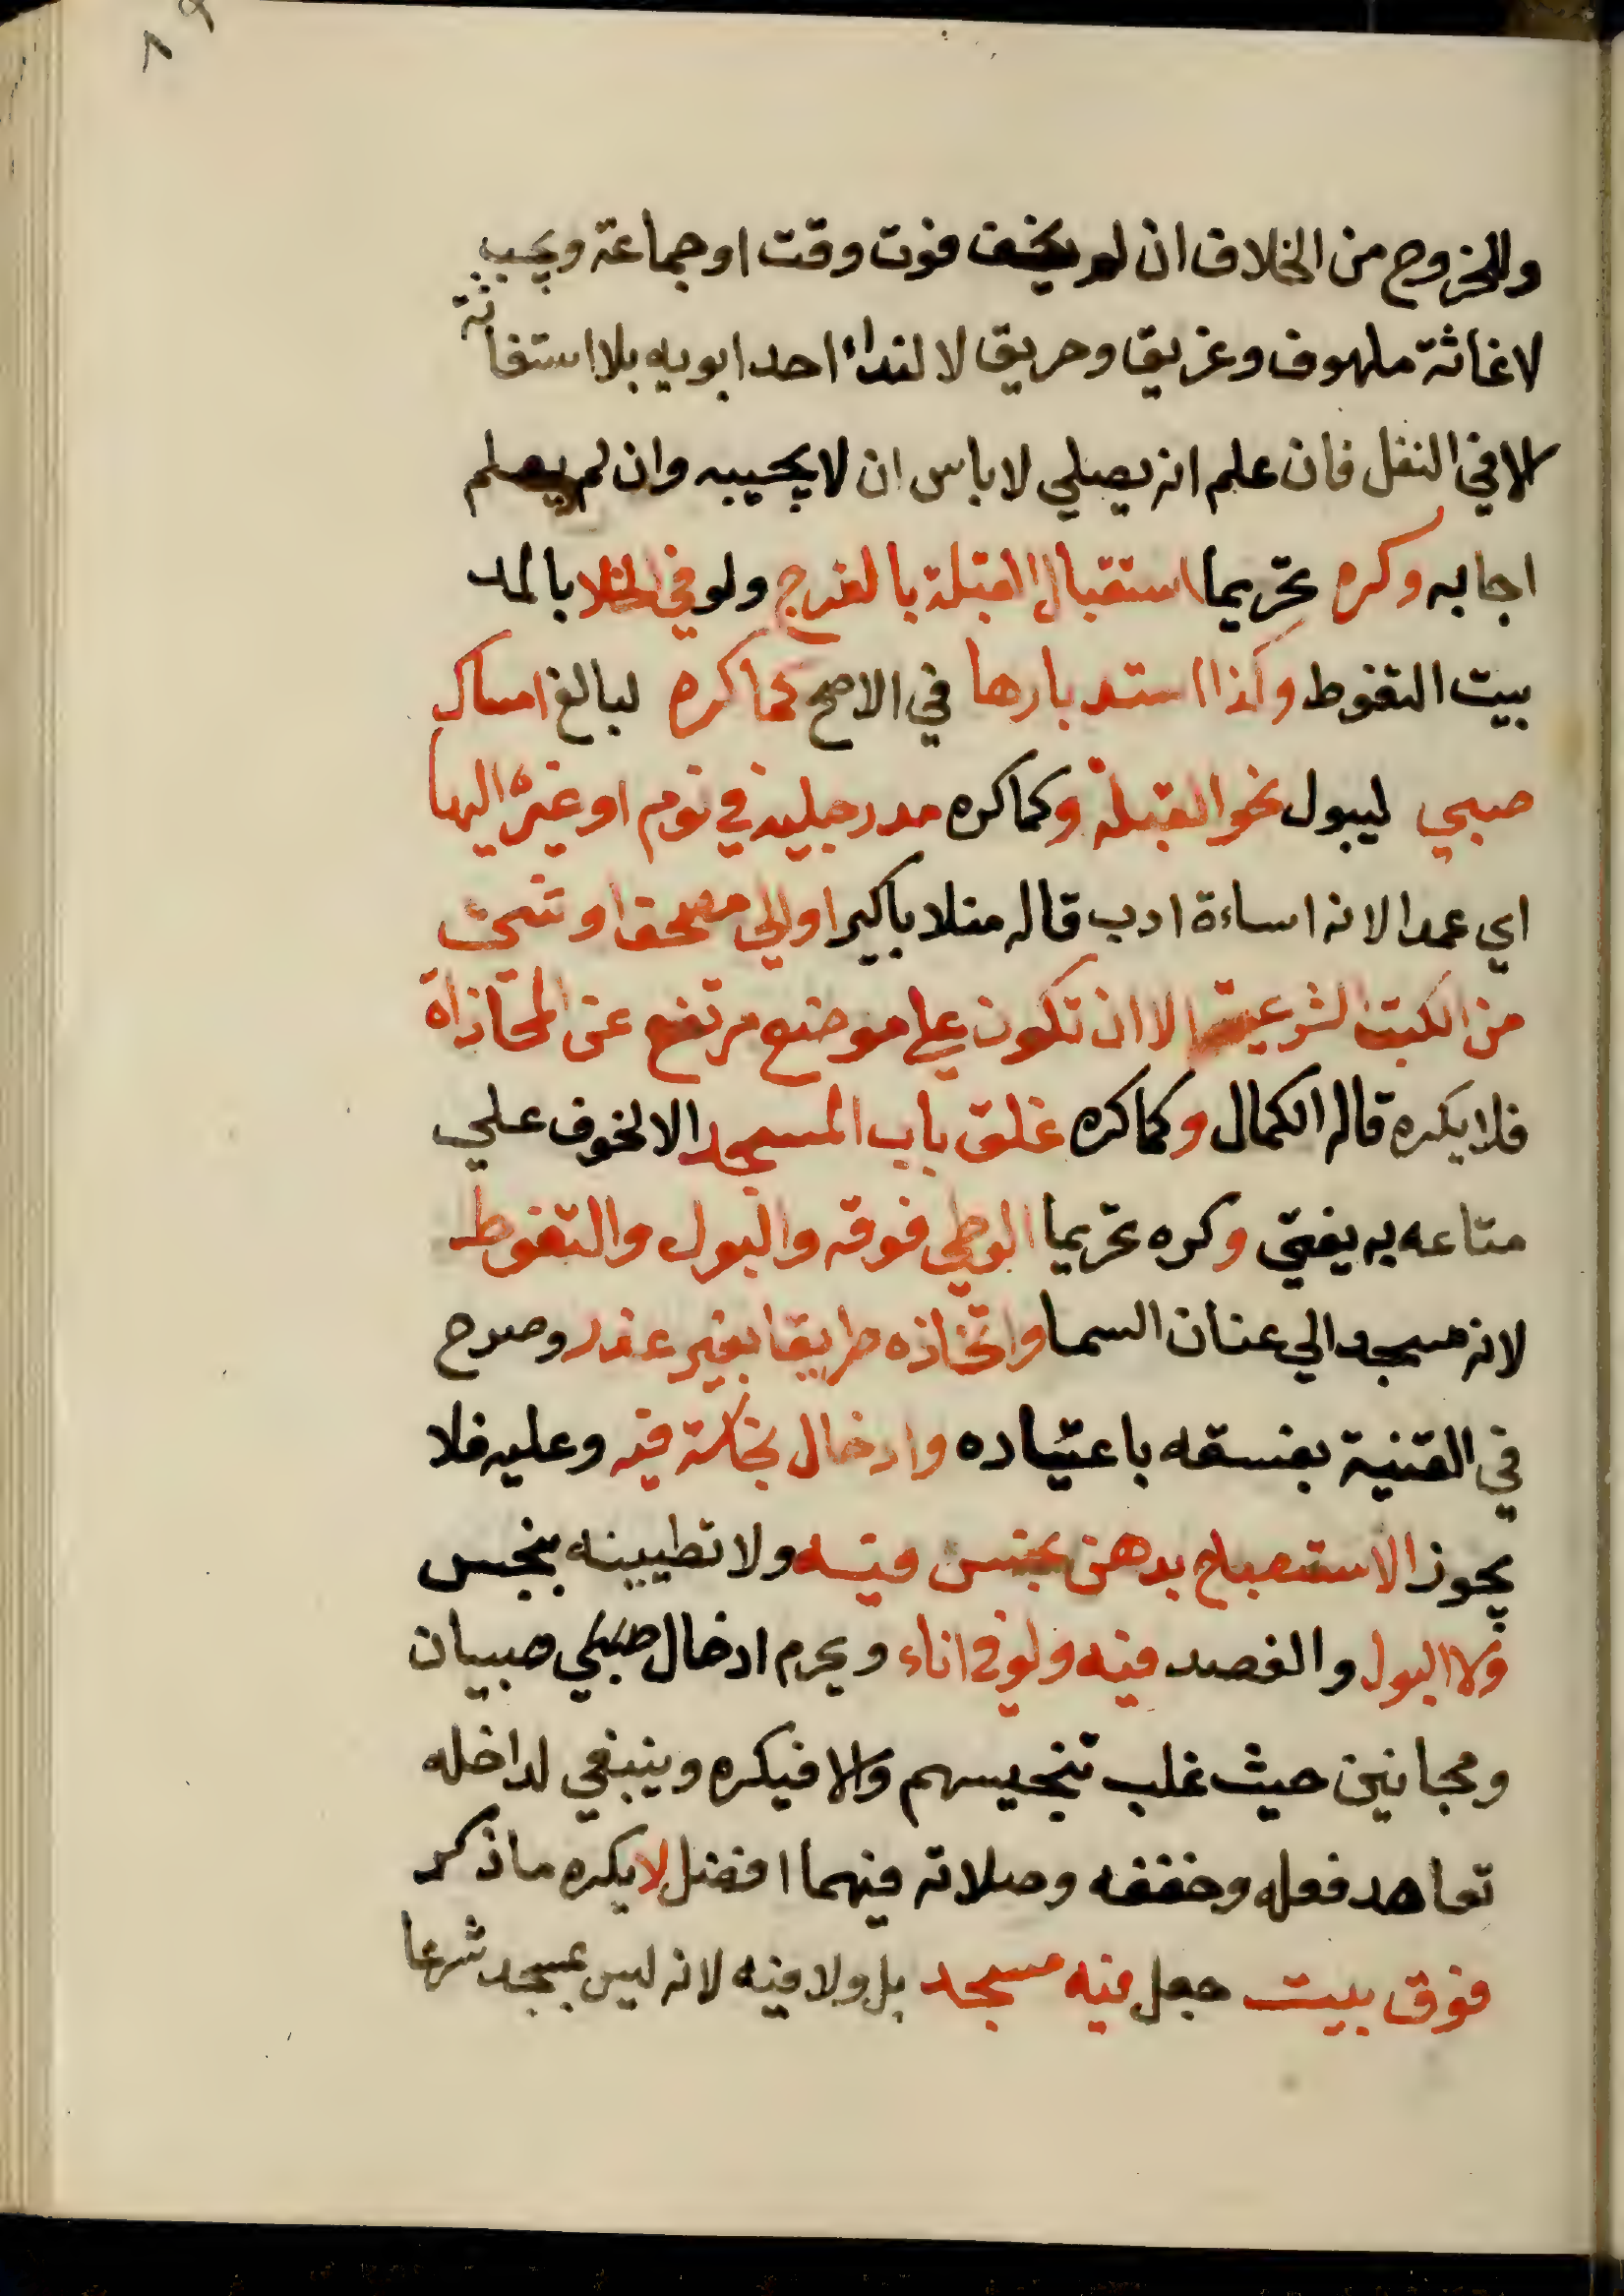 ٨٩
وللخروج من الخلاف ان لم يخف فوت وقت او جماعة ويجب
لاغاثة ملهوف وغريق وحريق لا لنداء احد ابويه بلا استغاثة
الا في النفل فان علم انه يصلي لا باس ان لا يجيبه وان لم يعلم
اجابه وكره تحريما استقبال القبلة بالفرج ولو في الخلا بالمد
بيت التغوط وكذا استدبارها في الاصح كما كره لبالغ امساك
صبي ليبول نحو القبلة وكما كره مد رجليه في نوم او غيره اليها
اي عمدا لانه اساءة ادب قاله منلا باكير او الي مصحف او شئ
من الكتب الشرعية الا ان تكون علي موضع مرتفع عن المحاذاة
فلا يكره قاله الكمال وكما كره غلق باب المسجد الا لخوف علي
متاعه به يفتي وكره تحريما الوطي فوقه والبول والتغوط
لانه مسجد الي عنان السما واتخاذه طريقا بغير عذر وصرح
في القنية بفسقه باعتياده وادخال نجاسة فيه وعليه فلا
يجوز الاستصباح بدهن نجس فيه ولا تطيينه بنجس
ولا البول والفصد فيه ولو في اناء ويحرم ادخال صبي صبيان
ومجانين حيث غلب تنجيسهم والا فيكره وينبغي لداخله
تعاهد فعله وخففه وصلاته فيهما افضل لا يكره ما ذكر
فوق بيت جعل فيه مسجد بل ولا فيه لانه ليس بمسجد شرعا